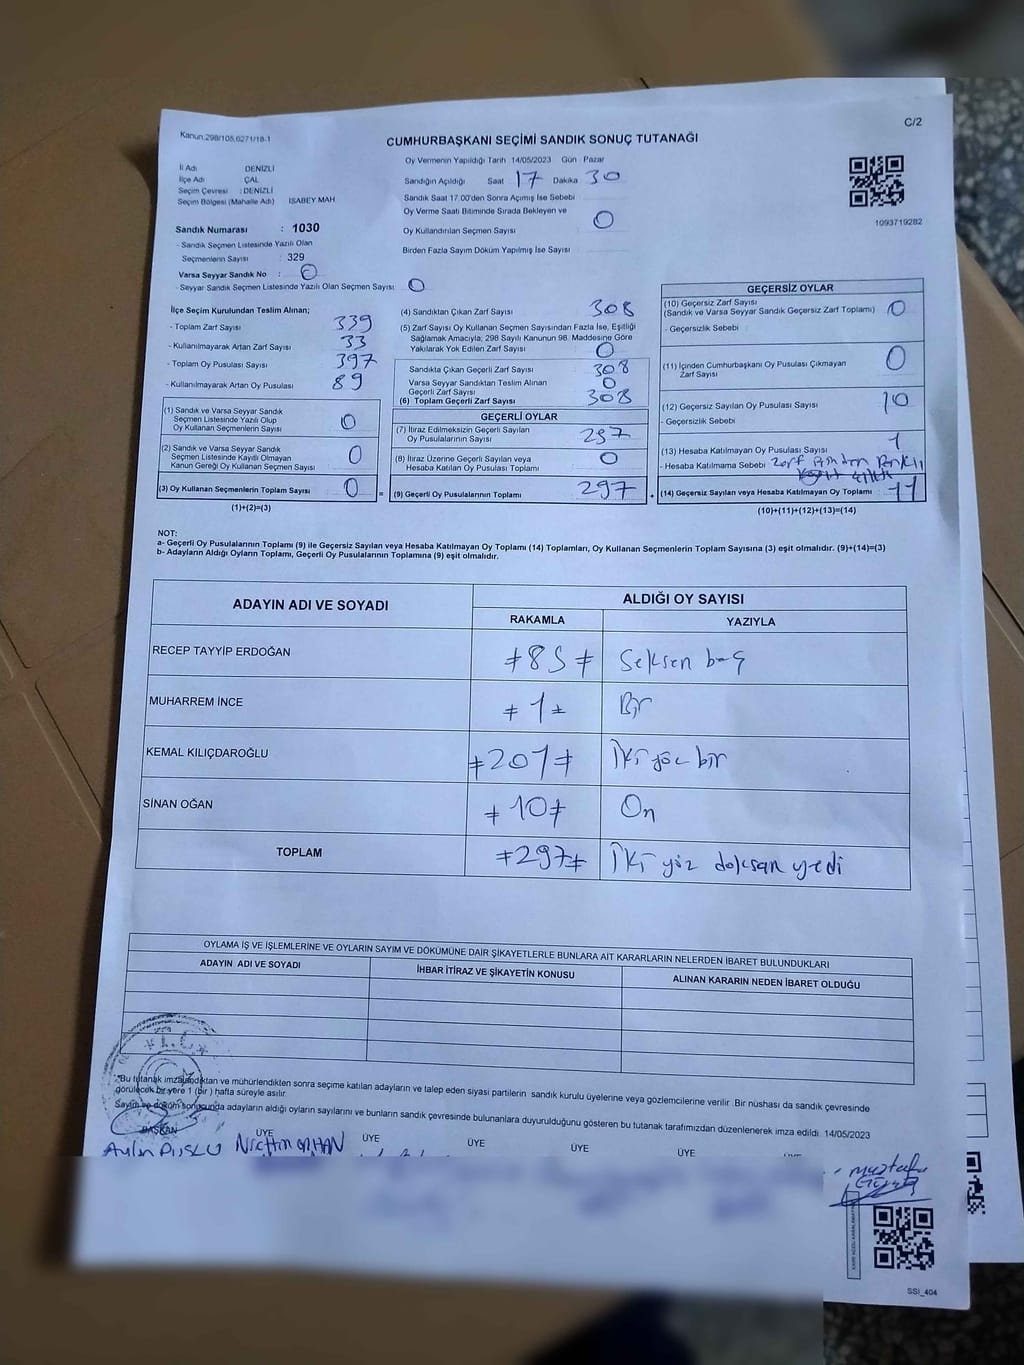 C/2
Kanun.298/105,6271/18-1
CUMHURBAŞKANI SEÇİMİ SANDIK SONUÇ TUTANAĞI
İl Adı DENİZLİ
İlçe Adı ÇAL
Seçim Çevresi : DENİZLİ
Seçim Bölgesi (Mahalle Adı) İSABEY MAH
Sandık Numarası : 1030
- Sandık Seçmen Listesinde Yazılı Olan
Seçmenlerin Sayısı : 329
Varsa Seyyar Sandık No : 0
- Seyyar Sandık Seçmen Listesinde Yazılı Olan Seçmen Sayısı 0
Oy Vermenin Yapıldığı Tarih 14/05/2023 Gün Pazar
Sandığın Açıldığı Saat 17 Dakika 30
Sandık Saat 17.00'den Sonra Açımış İse Sebebi
Oy Verme Saati Bitiminde Sırada Bekleyen ve
Oy Kullandırılan Seçmen Sayısı 0
Birden Fazla Sayım Döküm Yapılmış İse Sayısı
1093719282
İlçe Seçim Kurulundan Teslim Alınan;
- Toplam Zarf Sayısı 339
- Kullanılmayarak Artan Zarf Sayısı 33
- Toplam Oy Pusulası Sayısı 397
- Kullanılmayarak Artan Oy Pusulası 89
(1) Sandık ve Varsa Seyyar Sandık
Seçmen Listesinde Yazılı Olup
Oy Kullanan Seçmenlerin Sayısı 0
(2) Sandık ve Varsa Seyyar Sandık
Seçmen Listesinde Kayıtlı Olmayan
Kanun Gereği Oy Kullanan Seçmen Sayısı 0
(3) Oy Kullanan Seçmenlerin Toplam Sayısı 0 =
(1)+(2)=(3)
(4) Sandıktan Çıkan Zarf Sayısı 308
(5) Zarf Sayısı Oy Kullanan Seçmen Sayısından Fazla İse, Eşitliği
Sağlamak Amacıyla, 298 Sayılı Kanunun 98. Maddesine Göre
Yakılarak Yok Edilen Zarf Sayısı 0
Sandıkta Çıkan Geçerli Zarf Sayısı 308
Varsa Seyyar Sandıktan Teslim Alınan
Geçerli Zarf Sayısı 0
(6) Toplam Geçerli Zarf Sayısı 308
GEÇERLİ OYLAR
(7) İtiraz Edilmeksizin Geçerli Sayılan
Oy Pusulalarının Sayısı 297
(8) İtiraz Üzerine Geçerli Sayılan veya
Hesaba Katılan Oy Pusulası Toplamı 0
(9) Geçerli Oy Pusulalarının Toplamı 297 +
GEÇERSİZ OYLAR
(10) Geçersiz Zarf Sayısı
(Sandık ve Varsa Seyyar Sandık Geçersiz Zarf Toplamı) 0
- Geçersizlik Sebebi
(11) İçinden Cumhurbaşkanı Oy Pusulası Çıkmayan
Zarf Sayısı 0
(12) Geçersiz Sayılan Oy Pusulası Sayısı 10
- Geçersizlik Sebebi
(13) Hesaba Katılmayan Oy Pusulası Sayısı 1
- Hesaba Katılmama Sebebi
(14) Geçersiz Sayılan veya Hesaba Katılmayan Oy Toplamı 11
(10)+(11)+(12)+(13)=(14)
NOT:
a- Geçerli Oy Pusulalarının Toplamı (9) ile Geçersiz Sayılan veya Hesaba Katılmayan Oy Toplamı (14) Toplamları, Oy Kullanan Seçmenlerin Toplam Sayısına (3) eşit olmalıdır. (9)+(14)=(3)
b- Adayların Aldığı Oyların Toplamı, Geçerli Oy Pusulalarının Toplamına (9) eşit olmalıdır.
ADAYIN ADI VE SOYADI ALDIĞI OY SAYISI
RAKAMLA YAZIYLA
RECEP TAYYİP ERDOĞAN ≠85≠ Seksen beş
MUHARREM İNCE ≠1≠ Bir
KEMAL KILIÇDAROĞLU ≠201≠ İki yüz bir
SİNAN OĞAN ≠10≠ On
TOPLAM ≠297≠ İki yüz doksan yedi
OYLAMA İŞ VE İŞLEMLERİNE VE OYLARIN SAYIM VE DÖKÜMÜNE DAİR ŞİKAYETLERLE BUNLARA AİT KARARLARIN NELERDEN İBARET BULUNDUKLARI
ADAYIN ADI VE SOYADI İHBAR İTİRAZ VE ŞİKAYETİN KONUSU ALINAN KARARIN NEDEN İBARET OLDUĞU
T.C.
*Bu tutanak imzalandıktan ve mühürlendikten sonra seçime katılan adayların ve talep eden siyasi partilerin sandık kurulu üyelerine veya gözlemcilerine verilir. Bir nüshası da sandık çevresinde
görülecek bir yere 1 (bir) hafta süreyle asılır.
Sayım ve döküm sonucunda adayların aldığı oyların sayılarını ve bunların sandık çevresinde bulunanlara duyurulduğunu gösteren bu tutanak tarafımızdan düzenlenerek imza edildi. 14/05/2023
BAŞKAN ÜYE ÜYE ÜYE ÜYE ÜYE
SSİ_404